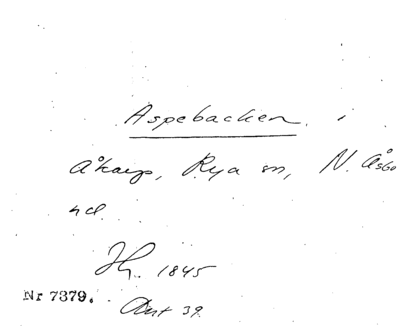 Aspebacken i
Åkarp, Rya sn, N. Åsbo
hd.
Jh. 1845
Nr 7379.
Avt 39